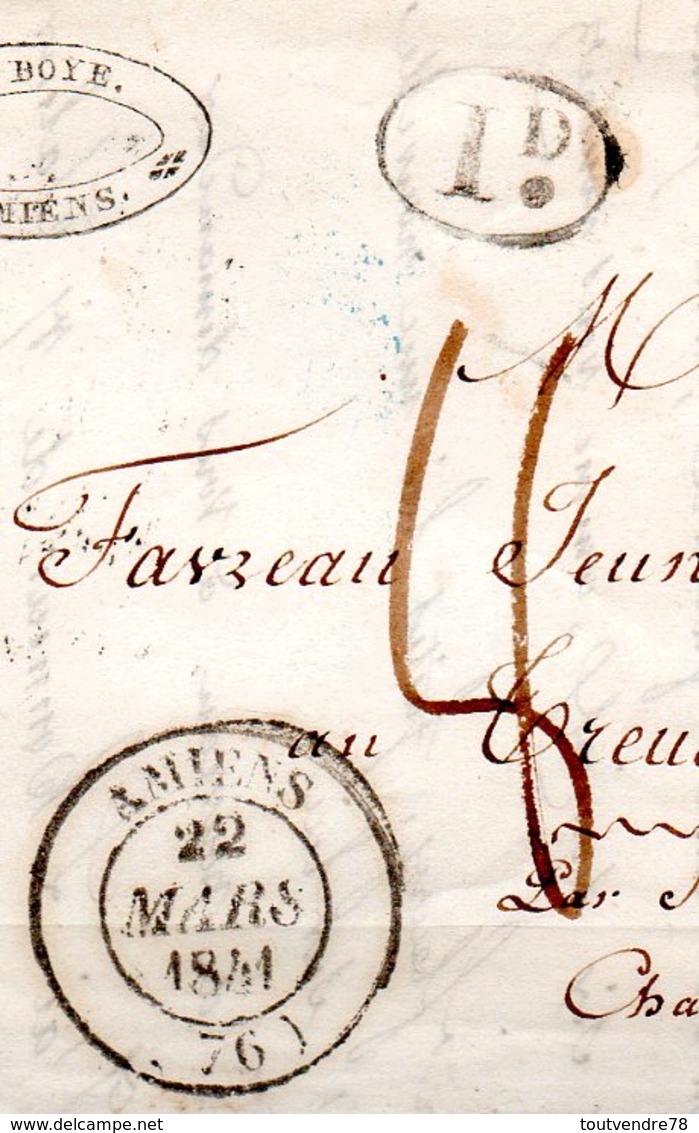 BOYE.
MIENS.
1D.
M
Farzeau Jeun
au Creu
Par
Cha
4
AMIENS
22
MARS
1841
(76)
toutvendre78